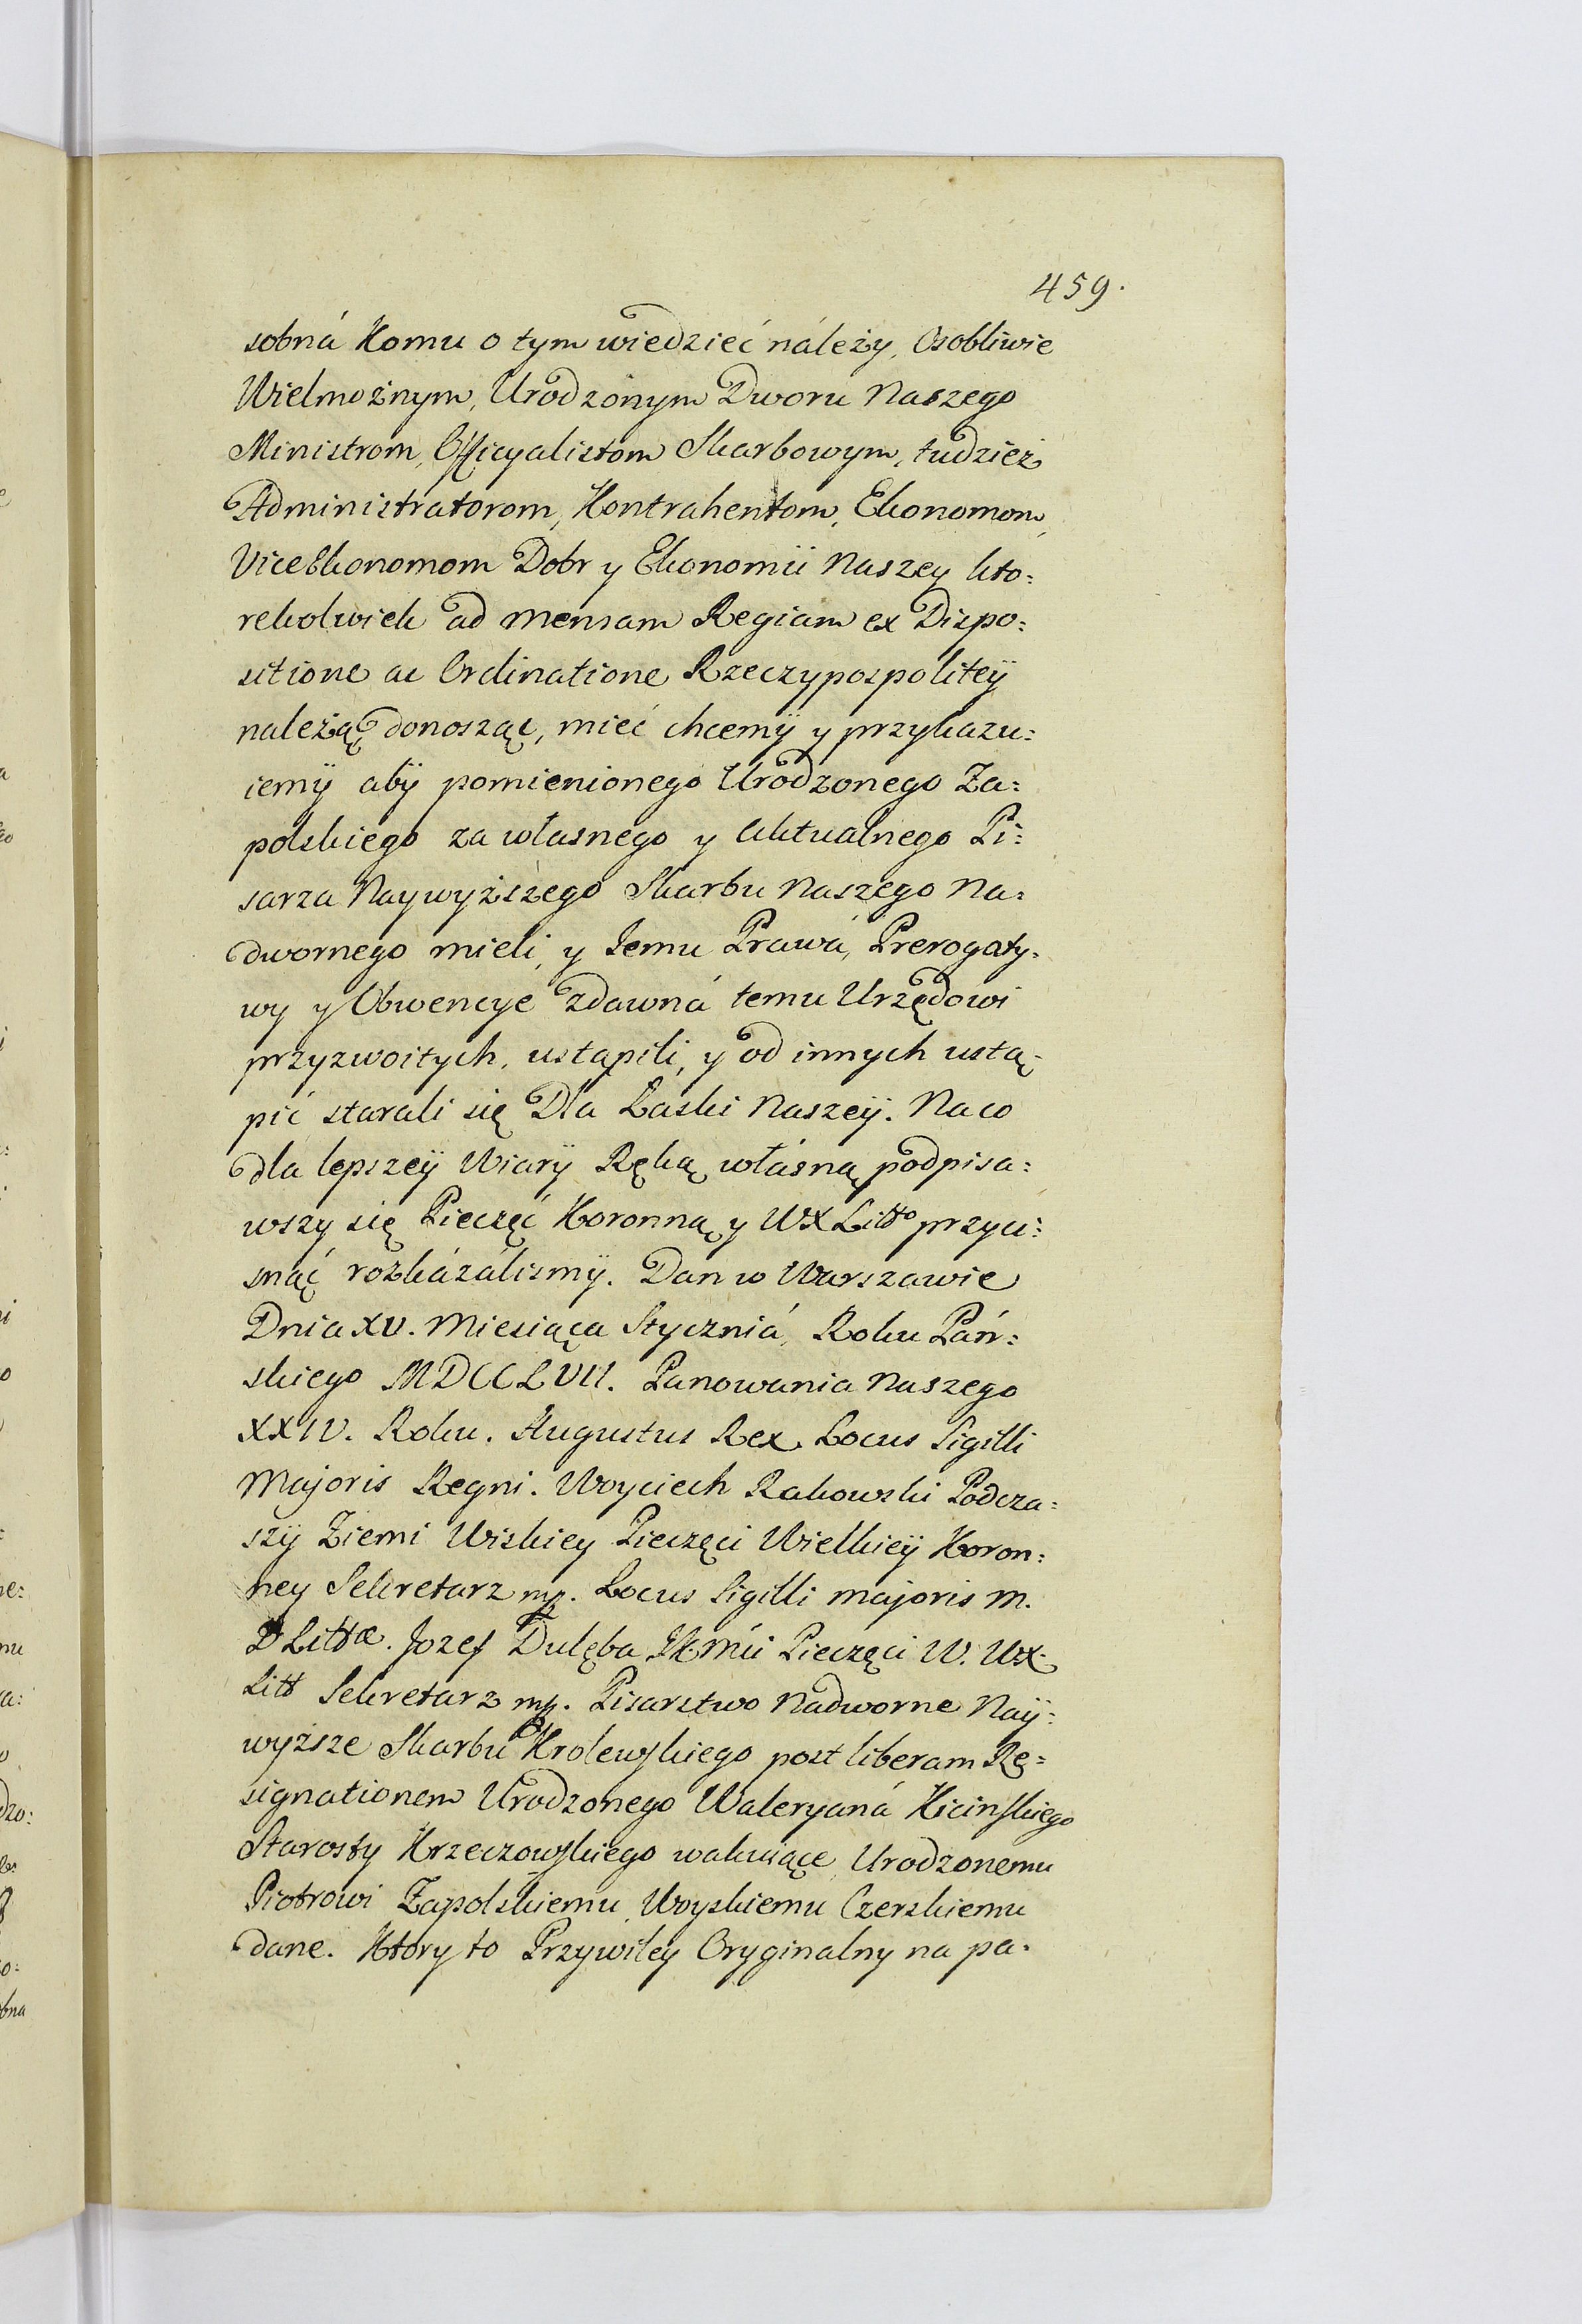 459.
sobná Komu o tym wiedzieć náleży, Osobliwie
Wielmożnym, Urodzonym Dworu Naszego
Ministrom, Officyalistom Skarbowym, tudzież
Administratorom, Kontrahentom, Ekonomom,
ViceEkonomom Dobr y Ekonomii Naszey kto:
rekolwiek ad mensam Regiam ex Dispo:
sitione ac Ordinatione Rzeczypospolitey
należą donosząc, mieć chcemÿ y przykazu:
iemÿ abÿ pomienionego Urodzonego Za:
polskiego za własnego y Aktualnego Pi:
sarza Naywyższego Skarbu Naszego Na:
dwornego mieli, y Iemu Prawá, Prerogaty:
wy y Obwencye zdawná temu Urzędowi
przyzwoitych, ustąpili, y od innych ustą:
pić starali się Dla Łaski Naszeÿ. Na co
dla lepszeÿ Wiarÿ Ręką włásną podpisa:
wszy się Pieczęć Koronną y WX Litto przyci:
snąć rozkázálismÿ. Dan w Warszawie
Dnia XV. Miesiąca Styczniá, Roku Pań:
skiego MDCCLVII. Panowania Naszego
XXIV. Roku. Augustus Rex Locus Sigilli
Majoris Regni. Woyciech Rakowski Podcza:
szÿ Ziemi Wiskiey Pieczęci Wielkieÿ Koron:
ney Sekretarz mp. Locus Sigilli majoris M.
D Littæ. Jozef Dulęba Pieczęci W. WX.
Litt Sekretarz mp. Pisarstwo Nadworne Naÿ:
wyższe Skarbu Krolewskiego post liberam Re:
signationem Urodzonego Waleryaná Kicinskiego
Starosty Krzeczowskiego wakuiące, Urodzonemu
Piotrowi Zapolskiemu, Woyskiemu Czerskiemu
dane. Ktory to Przywiley Oryginalny na pa: